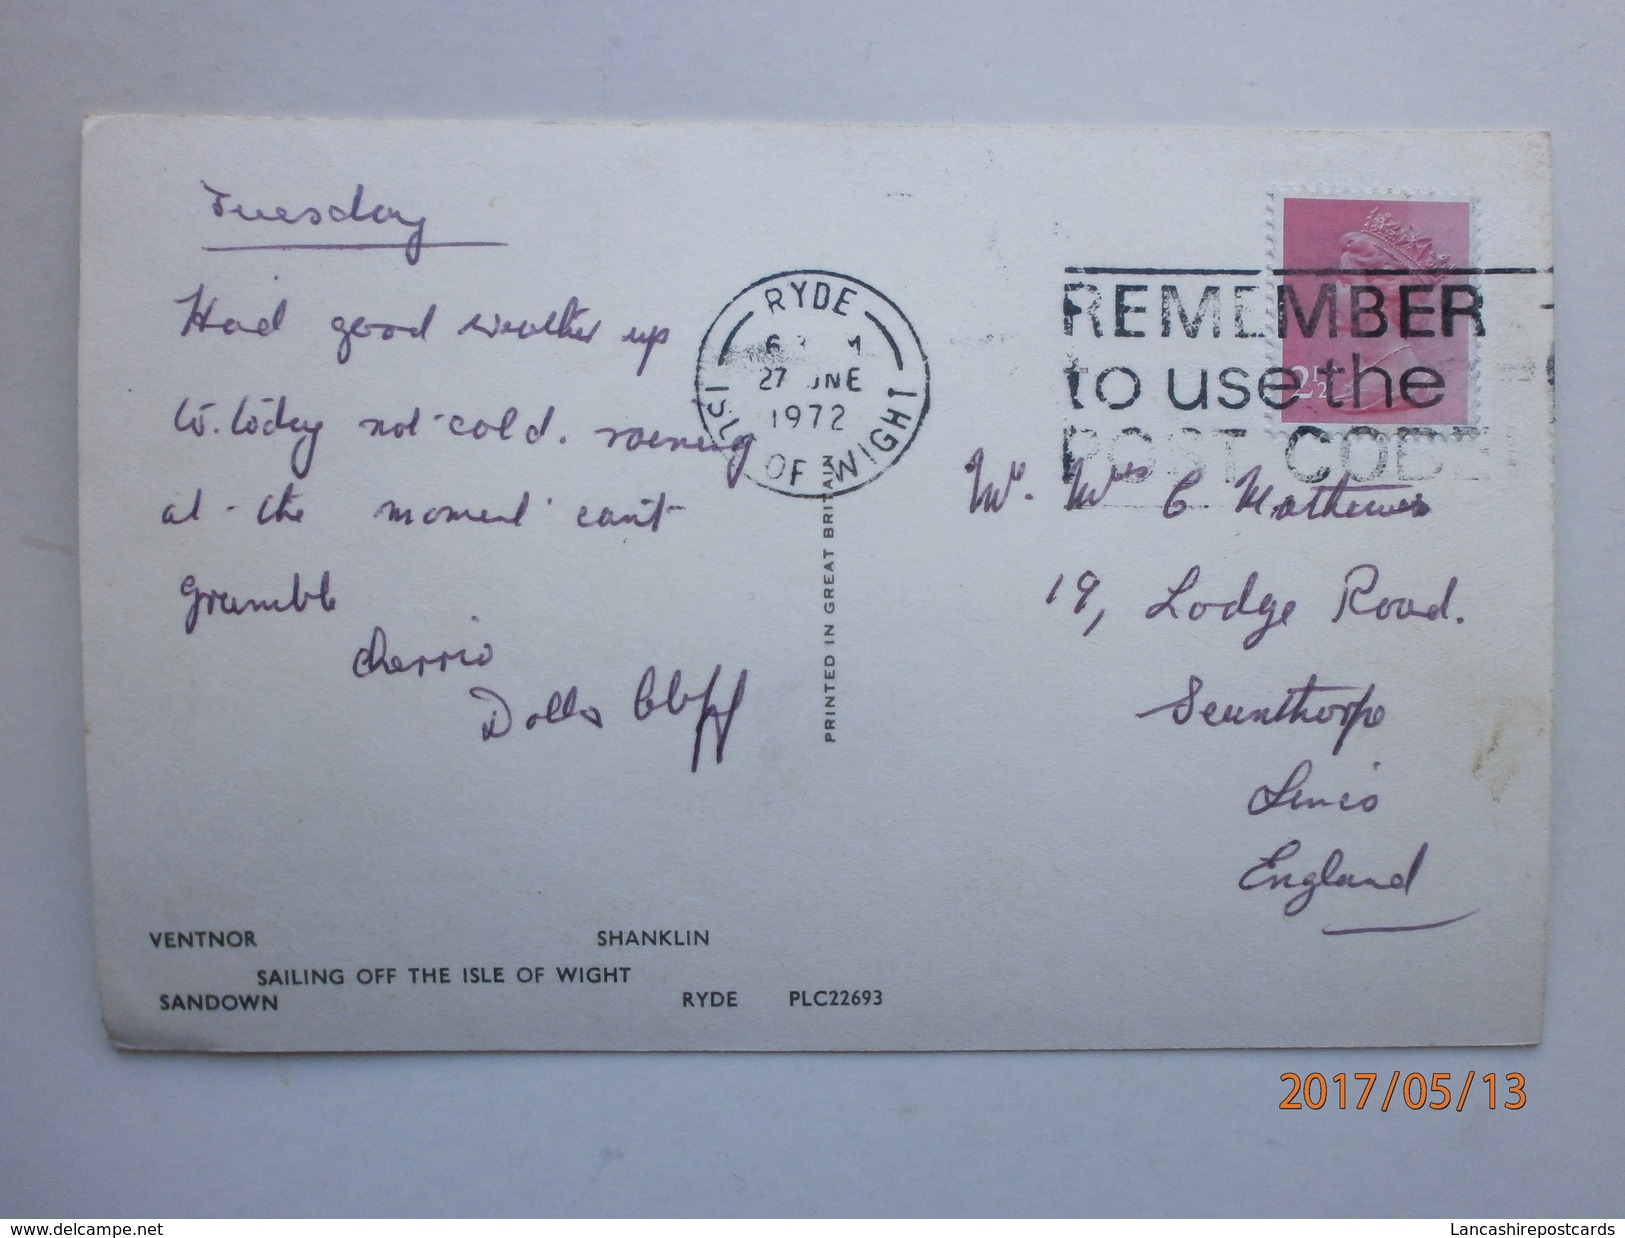 Tuesday
Had good weather up
to. today not cold. raening
at the moment can't
grumble
cherrio
Dolls
RYDE
27 JUNE
1972
ISLE OF WIGHT
REMEMBER
to use the
POST CODE
2½
Mr. Mrs C Mathews
19, Lodge Road.
Scunthorpe
Lincs
England
PRINTED IN GREAT BRITAIN
VENTNOR SHANKLIN
SAILING OFF THE ISLE OF WIGHT
SANDOWN RYDE PLC22693
2017/05/13
www.delcampe.net
Lancashirepostcards